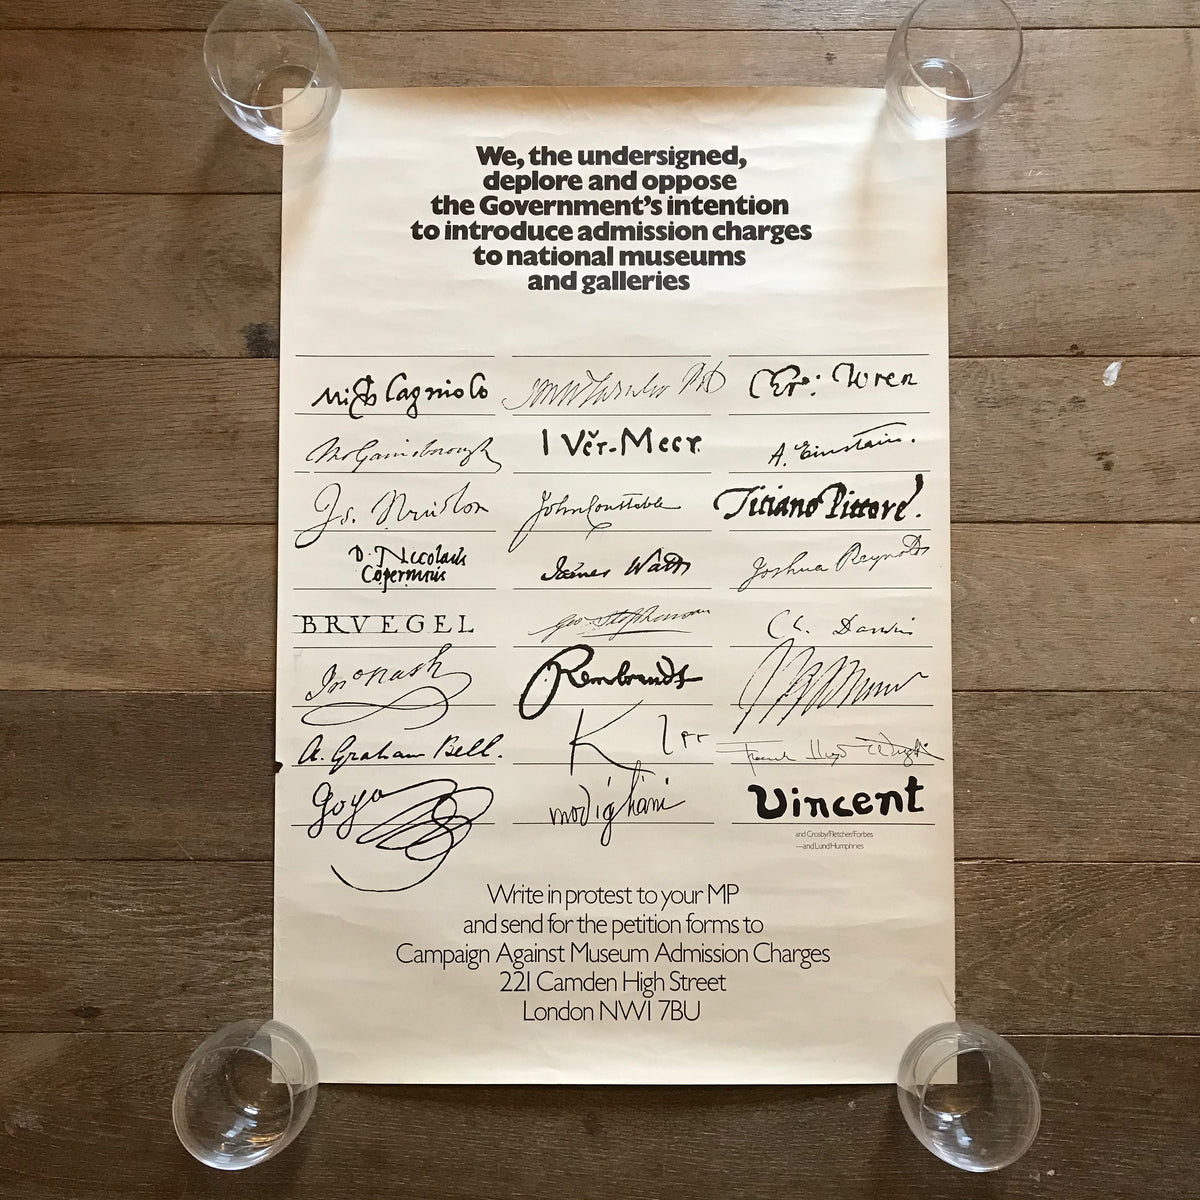 We, the undersigned,
deplore and oppose
the Government's intention
to introduce admission charges
to national museums
and galleries
Chr: Wren
I Ver-Meer.
A. Einstein.
John Constable
Titiano Pittore!
James Watt
Joshua Reynolds
BRVEGEL
Geo Stephenson
Ch. Darwin
Jno Nash
Rembrandt
A. Graham Bell.
Klee
Frank Lloyd Wright
Goya
modigliani
Vincent
and Crosby/Fletcher/Forbes
—and Lund Humphries
Write in protest to your MP
and send for the petition forms to
Campaign Against Museum Admission Charges
221 Camden High Street
London NW1 7BU